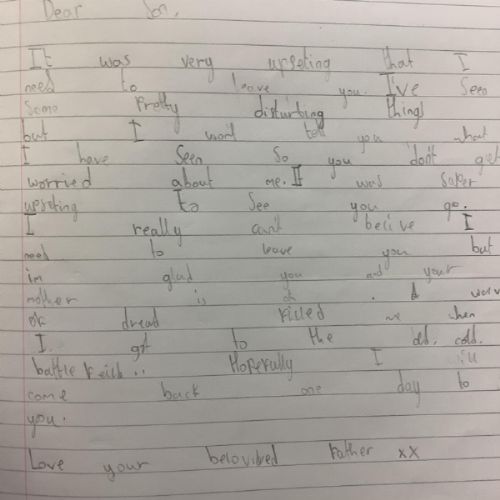 Dear Son,
It was very upseting that I
need to leave you. I've Seen
Some Pretty disturbing things
but I won't tell you what
I have Seen So you don't get
worried about me. It was Super
upseting to See you go.
I really can't belive I
need to leave you but
im glad you and your
mother is ok. A wave
of dread filled me when
I got to the old, cold.
battle feild.. Hopefully I ill
come back one day to
you.
Love your belovibed Father xx